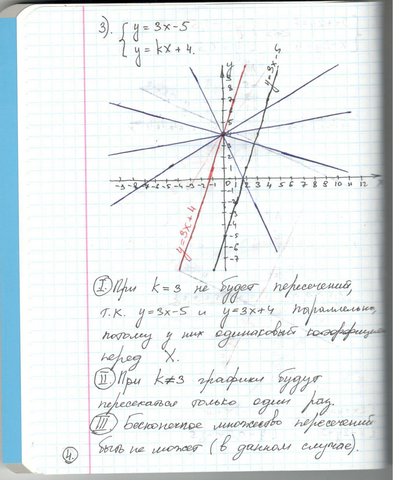 3). { y = 3x - 5
y = kx + 4.
y
y=3x-4
y=3x+4
x
-9 -8 -7 -6 -5 -4 -3 -2 -1 1 2 3 4 5 6 7 8 9 10 11 12
I. При k = 3 не будет пересечений,
т.к. y=3x-5 и y=3x+4 параллельны,
потому у них одинаковый
перед X.
II При k≠3 графики будут
пересекаться только один раз.
III Бесконечное множество пересечений
быть не может (в данном случае).
4.